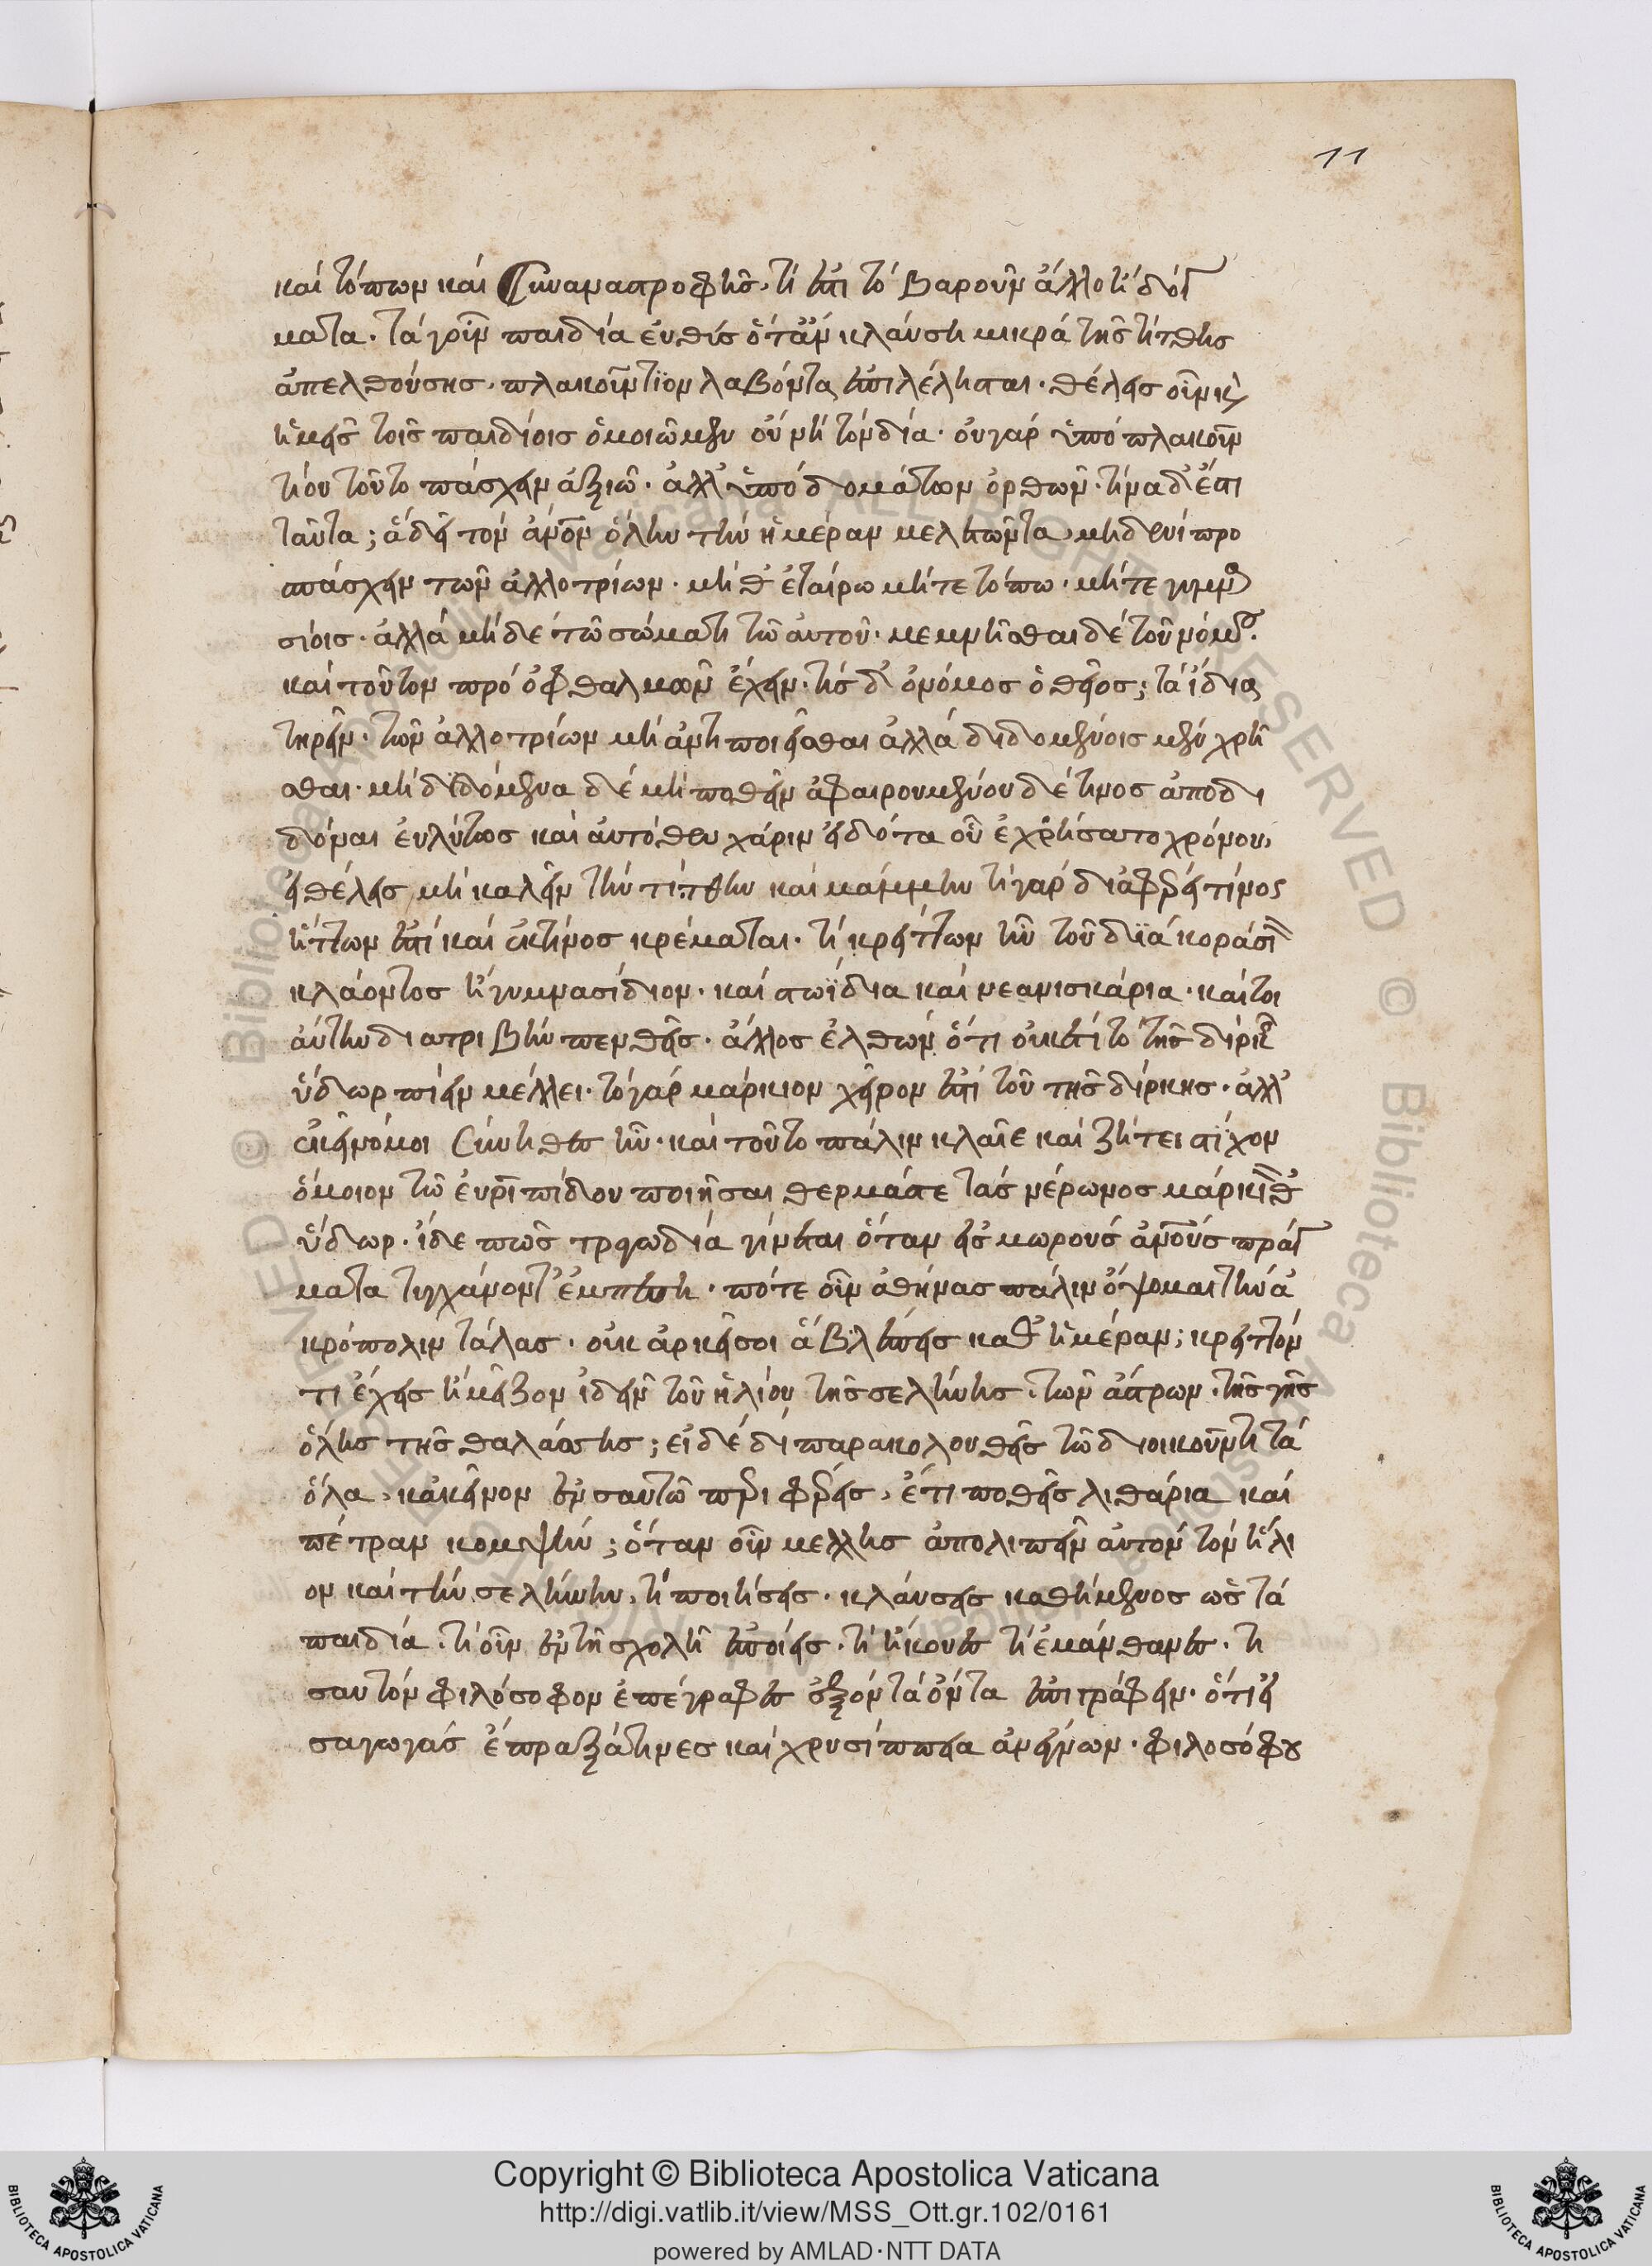 11
καὶ τόπων καὶ συναναστροφῆς. τί ἐστι τὸ βαροῦν ἄλλο ἢ δόγ
ματα. τὰ γοῦν παιδία εὐθὺς ὅταν κλαύση μικρὰ τῆς τίτθης
ἀπελθούσης, πλακούντιον λαβόντα ἐπιλέλησται. θέλεις οὖν κ(αὶ)
ἡμεῖς τοῖς παιδίοις ὁμοιῶμεν οὐ μὴ τὸν δία. οὐ γὰρ ὑπὸ πλακουν
τίου τοῦτο πάσχειν ἀξιῶ. ἀλλ' ὑπὸ δογμάτων ὀρθῶν. τίνα δ' ἐστὶ
ταῦτα; ἃ δεῖ τὸν ἄνον ὅλην τὴν ἡμέραν μελετῶντα, μηδενὶ προ
σπάσχειν τῶν ἀλλοτρίων. μήθ' ἑταίρω μήτε τόπω. μήτε γυμνα
σίοις. ἀλλὰ μηδὲ τῶ σώματι τῶ αὑτοῦ. μεμνῆσθαι δὲ τοῦ νόμου.
καὶ τοῦτον πρὸ ὀφθαλμῶν ἔχειν. τίς δ' ὁ νόμος ὁ θεῖος; τὰ ἴδια
τηρεῖν. τῶν ἀλλοτρίων μὴ ἀντιποιεῖσθαι ἀλλὰ διδομένοις μὲν χρῆ
σθαι. μὴ διδόμενα δὲ μὴ ποθεῖν ἀφαιρουμένου δέ τινος ἀποδι
δόναι εὐλύτως καὶ αὐτόθεν χάριν εἰδότα οὗ ἐχρήσατο χρόνου,
εἰ θέλεις μὴ καλεῖν τὴν τίτθην καὶ μάμμην τί γὰρ διαφέρει τίνος
ἥττων ἐστὶ καὶ ἐκ τίνος κρέμαται. τί κρείττων εἶ τοῦ διὰ κοράσιον
κλάοντος εἰ γυμνασίδιον. καὶ στωΐδια καὶ νεανισκάρια. καὶ τοι
αύτην διατριβὴν πενθεῖς. ἄλλος ἐλθὼν ὅτι οὐκέτι τὸ τῆς δίρκης
ὕδωρ πίνειν μέλλει. τὸ γὰρ μάρκιον χεῖρον ἐστὶ τοῦ τῆς δίρκης. ἀλλ'
ἐκεῖνό μοι σύνηθες ἦν. καὶ τοῦτο πάλιν κλαῖε καὶ ζήτει στίχον
ὅμοιον τῶ εὐριπίδου ποιῆσαι θερμάς τε τὰς νέρωνος μάρκιόν θ'
ὕδωρ. ἴδε πῶς τραγωδία γίνεται ὅταν εἰς μωροὺς ἀνους πράγ
ματα τυγχάνοντ' ἐμπέση. πότε οὖν ἀθήνας πάλιν ὄψομαι τὴν ἀ
κρόπολιν τάλας. οὐκ ἀρκεῖ σοι ἃ βλέπεις καθ' ἡμέραν; κρεῖττόν
τι ἔχεις ἢ μεῖζον ἰδεῖν τοῦ ἡλίου τῆς σελήνης. τῶν ἄστρων. τῆς γῆς
ὅλης τῆς θαλάσσης; εἰ δὲ δὴ παρακολουθεῖς τῶ διοικοῦντι τὰ
ὅλα, κἀκεῖνον ἐν σαυτῶ περιφέρεις, ἔτι ποθεῖς λιθάρια καὶ
πέτραν κομψήν; ὅταν οὖν μέλλης ἀπολιπεῖν αὐτὸν τὸν ἥλι
ον καὶ τὴν σελήνην, τί ποιήσεις. κλαύσεις καθήμενος ὡς τὰ
παιδία. τί οὖν ἐν τῆ σχολῆ ἐποίεις. τί ἤκουες τί ἐμάνθανες. τί
σαυτὸν φιλόσοφον ἐπέγραφες ἐξὸν τὰ ὄντα ἐπιγράφειν. ὅτι εἰ
σαγωγὰς ἔπραξά τινες καὶ χρυσίππεια ἀνέγνων. φιλοσόφου
Copyright © Biblioteca Apostolica Vaticana
http://digi.vatlib.it/view/MSS_Ott.gr.102/0161
powered by AMLAD·NTT DATA
BIBLIOTECA APOSTOLICA VATICANA
BIBLIOTECA APOSTOLICA VATICANA